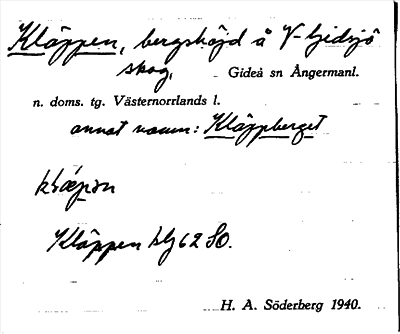 Kläppen, bergshöjd å V-Gidsjö
skog, Gideå sn Ångermanl.
n. doms. tg. Västernorrlands l.
annat namn: Kläppberget
Kläppen blj 62 SO.
H. A. Söderberg 1940.